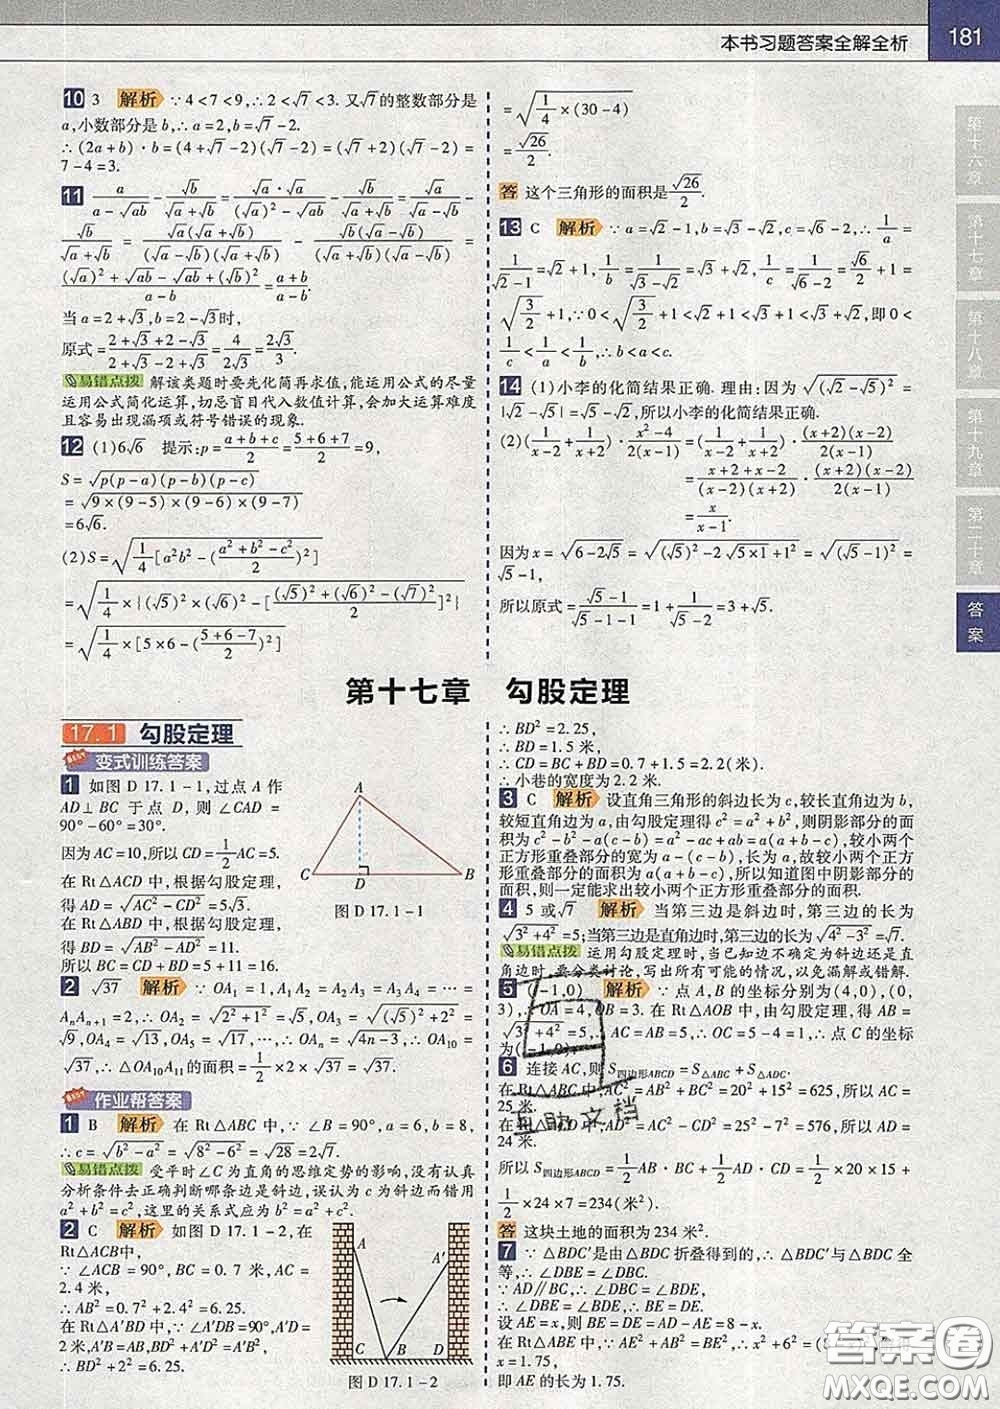 本书习题答案全解全析 181
10 3 解析 ∵4<7<9,∴2<√7<3.又√7的整数部分是
a,小数部分是b,∴a=2,b=√7-2.
∴(2a+b)·b=(4+√7-2)(√7-2)=(√7+2)(√7-2)=
7-4=3.
11 a/(a-√ab)-√b/(√a+√b)=(√a·√a)/((√a)²-√ab)-√b/(√a+√b)=√a/(√a-√b)-
√b/(√a+√b)=√a(√a+√b)/((√a-√b)(√a+√b))-√b(√a-√b)/((√a+√b)(√a-√b))=
((√a)²+√ab-√ab+(√b)²)/(a-b)=(a+b)/(a-b).
当a=2+√3,b=2-√3时,
原式=(2+√3+2-√3)/(2+√3-2+√3)=4/(2√3)=2√3/3.
易错点拨 解该类题时要先化简再求值,能运用公式的尽量
运用公式简化运算,切忌盲目代入数值计算,会加大运算难度
且容易出现漏项或符号错误的现象.
12 (1)6√6 提示:p=(a+b+c)/2=(5+6+7)/2=9,
S=√(p(p-a)(p-b)(p-c))
=√(9×(9-5)×(9-6)×(9-7))
=6√6.
(2)S=√(1/4[a²b²-((a²+b²-c²)/2)²])
=√(1/4×{(√5)²×(√6)²-[((√5)²+(√6)²-(√7)²)/2]²})
=√(1/4×[5×6-((5+6-7)/2)²])
=√(1/4×(30-4))
=√26/2.
答 这个三角形的面积是√26/2.
13 C 解析 ∵a=√2-1,b=√3-√2,c=√6-2,∴1/a=
1/(√2-1)=√2+1,1/b=1/(√3-√2)=√3+√2,1/c=1/(√6-2)=√6/2+1=
√(3/2)+1.∵0<√(3/2)+1<√2+1<√3+1<√3+√2,即0<
1/c<1/a<1/b,∴b<a<c.
14 (1)小李的化简结果正确.理由:因为√((√2-√5)²)=
|√2-√5|=√5-√2,所以小李的化简结果正确.
(2)(1/(x-2)+1/(x+2))·(x²-4)/(2(x-1))=(1/(x-2)+1/(x+2))·((x+2)(x-2))/(2(x-1))
=(x+2+x-2)/((x+2)(x-2))·((x+2)(x-2))/(2(x-1))
=x/(x-1).
因为x=√(6-2√5)=√((√5)²-2√(5×1)+1²)=√((√5-1)²)=√5-1,
所以原式=(√5-1)/(√5-1-1)=1+1/(√5-2)=3+√5.
第十六章
第十七章
第十八章
第十九章
第二十章
答案
第十七章 勾股定理
17.1 勾股定理
变式训练答案
1 如图D 17.1-1,过点A作
AD⊥BC于点D,则∠CAD=
90°-60°=30°.
因为AC=10,所以CD=1/2AC=5.
在Rt△ACD中,根据勾股定理,
得AD=√(AC²-CD²)=5√3.
在Rt△ABD中,根据勾股定理,
得BD=√(AB²-AD²)=11.
所以BC=CD+BD=5+11=16.
A
C D B
图D 17.1-1
2 √37 解析 ∵OA₁=1,A₁A₂=A₂A₃=A₃A₄=⋯=
AₙAₙ₊₁=2,∴OA₂=√(2²+1²)=√5,OA₃=√((√5)²+2²)=
√9,OA₄=√13,OA₅=√17,⋯,∴OAₙ=√(4n-3),∴OA₁₀=
√37,∴△OA₁₀A₁₁的面积=1/2×2×√37=√37.
作业帮答案
1 B 解析 在Rt△ABC中,∵∠B=90°,a=6,b=8,
∴c=√(b²-a²)=√(8²-6²)=√28=2√7.
易错点拨 受平时∠C为直角的思维定势的影响,没有认真
分析条件去正确判断哪条边是斜边,误认为c为斜边而错用
a²+b²=c²,这里的关系式应为b²=a²+c².
2 C 解析 如图D 17.1-2,在
Rt△ACB中,
∵∠ACB=90°,BC=0.7米,AC=
2.4米,
∴AB²=0.7²+2.4²=6.25.
在Rt△A'BD中,∵∠A'DB=90°,A'D=
2米,A'B=AB,∴BD²+A'D²=A'B²,
∴BD²+2²=6.25.
A A'
C B D
图D 17.1-2
∴BD²=2.25,
∴BD=1.5米,
∴CD=BC+BD=0.7+1.5=2.2(米).
∴小巷的宽度为2.2米.
3 C 解析 设直角三角形的斜边长为c,较长直角边为b,
较短直角边为a,由勾股定理得c²=a²+b²,则阴影部分的面
积为c²-b²-a(c-b)=a²-ac+ab=a(a+b-c),∵较小两个
正方形重叠部分的宽为a-(c-b),长为a,故较小两个正方形
重叠部分的面积为a(a+b-c),所以知道图中阴影部分的
面积,则一定能求出较小两个正方形重叠部分的面积.
4 5或√7 解析 当第三边是斜边时,第三边的长为
√(3²+4²)=5;当第三边是直角边时,第三边的长为√(4²-3²)=√7.
易错点拨 运用勾股定理时,当已知边不确定为斜边还是直
角边时,要分类讨论,写出所有可能的情况,以免漏解或错解.
5 (-1,0) 解析 ∵点A,B的坐标分别为(4,0),(0,
3),∴OA=4,OB=3.在Rt△AOB中,由勾股定理,得AB=
√(3²+4²)=5,∴AC=AB=5,∴OC=5-4=1,∴点C的坐标
为(-1,0).
6 连接AC,则S四边形ABCD=S△ABC+S△ADC.
在Rt△ABC中,AC²=AB²+BC²=20²+15²=625,所以AC=
25米.
在Rt△ACD中,AD²=AC²-CD²=25²-7²=576,所以AD=
24米.
所以S四边形ABCD=1/2AB·BC+1/2AD·CD=1/2×20×15+
1/2×24×7=234(米²).
答 这块土地的面积为234米².
7 ∵△BDC'是由△BDC折叠得到的,∴△BDC'与△BDC全
等,∴∠DBE=∠DBC.
∵AD∥BC,∴∠DBC=∠BDE,
∴∠DBE=∠BDE,∴BE=DE.
设AE=x,则BE=DE=AD-AE=8-x.
在Rt△ABE中,∵AE²+AB²=BE²,∴x²+6²=(8-x)²,
x=1.75,
即AE的长为1.75.
互助文档
答案圈
MXQE.COM